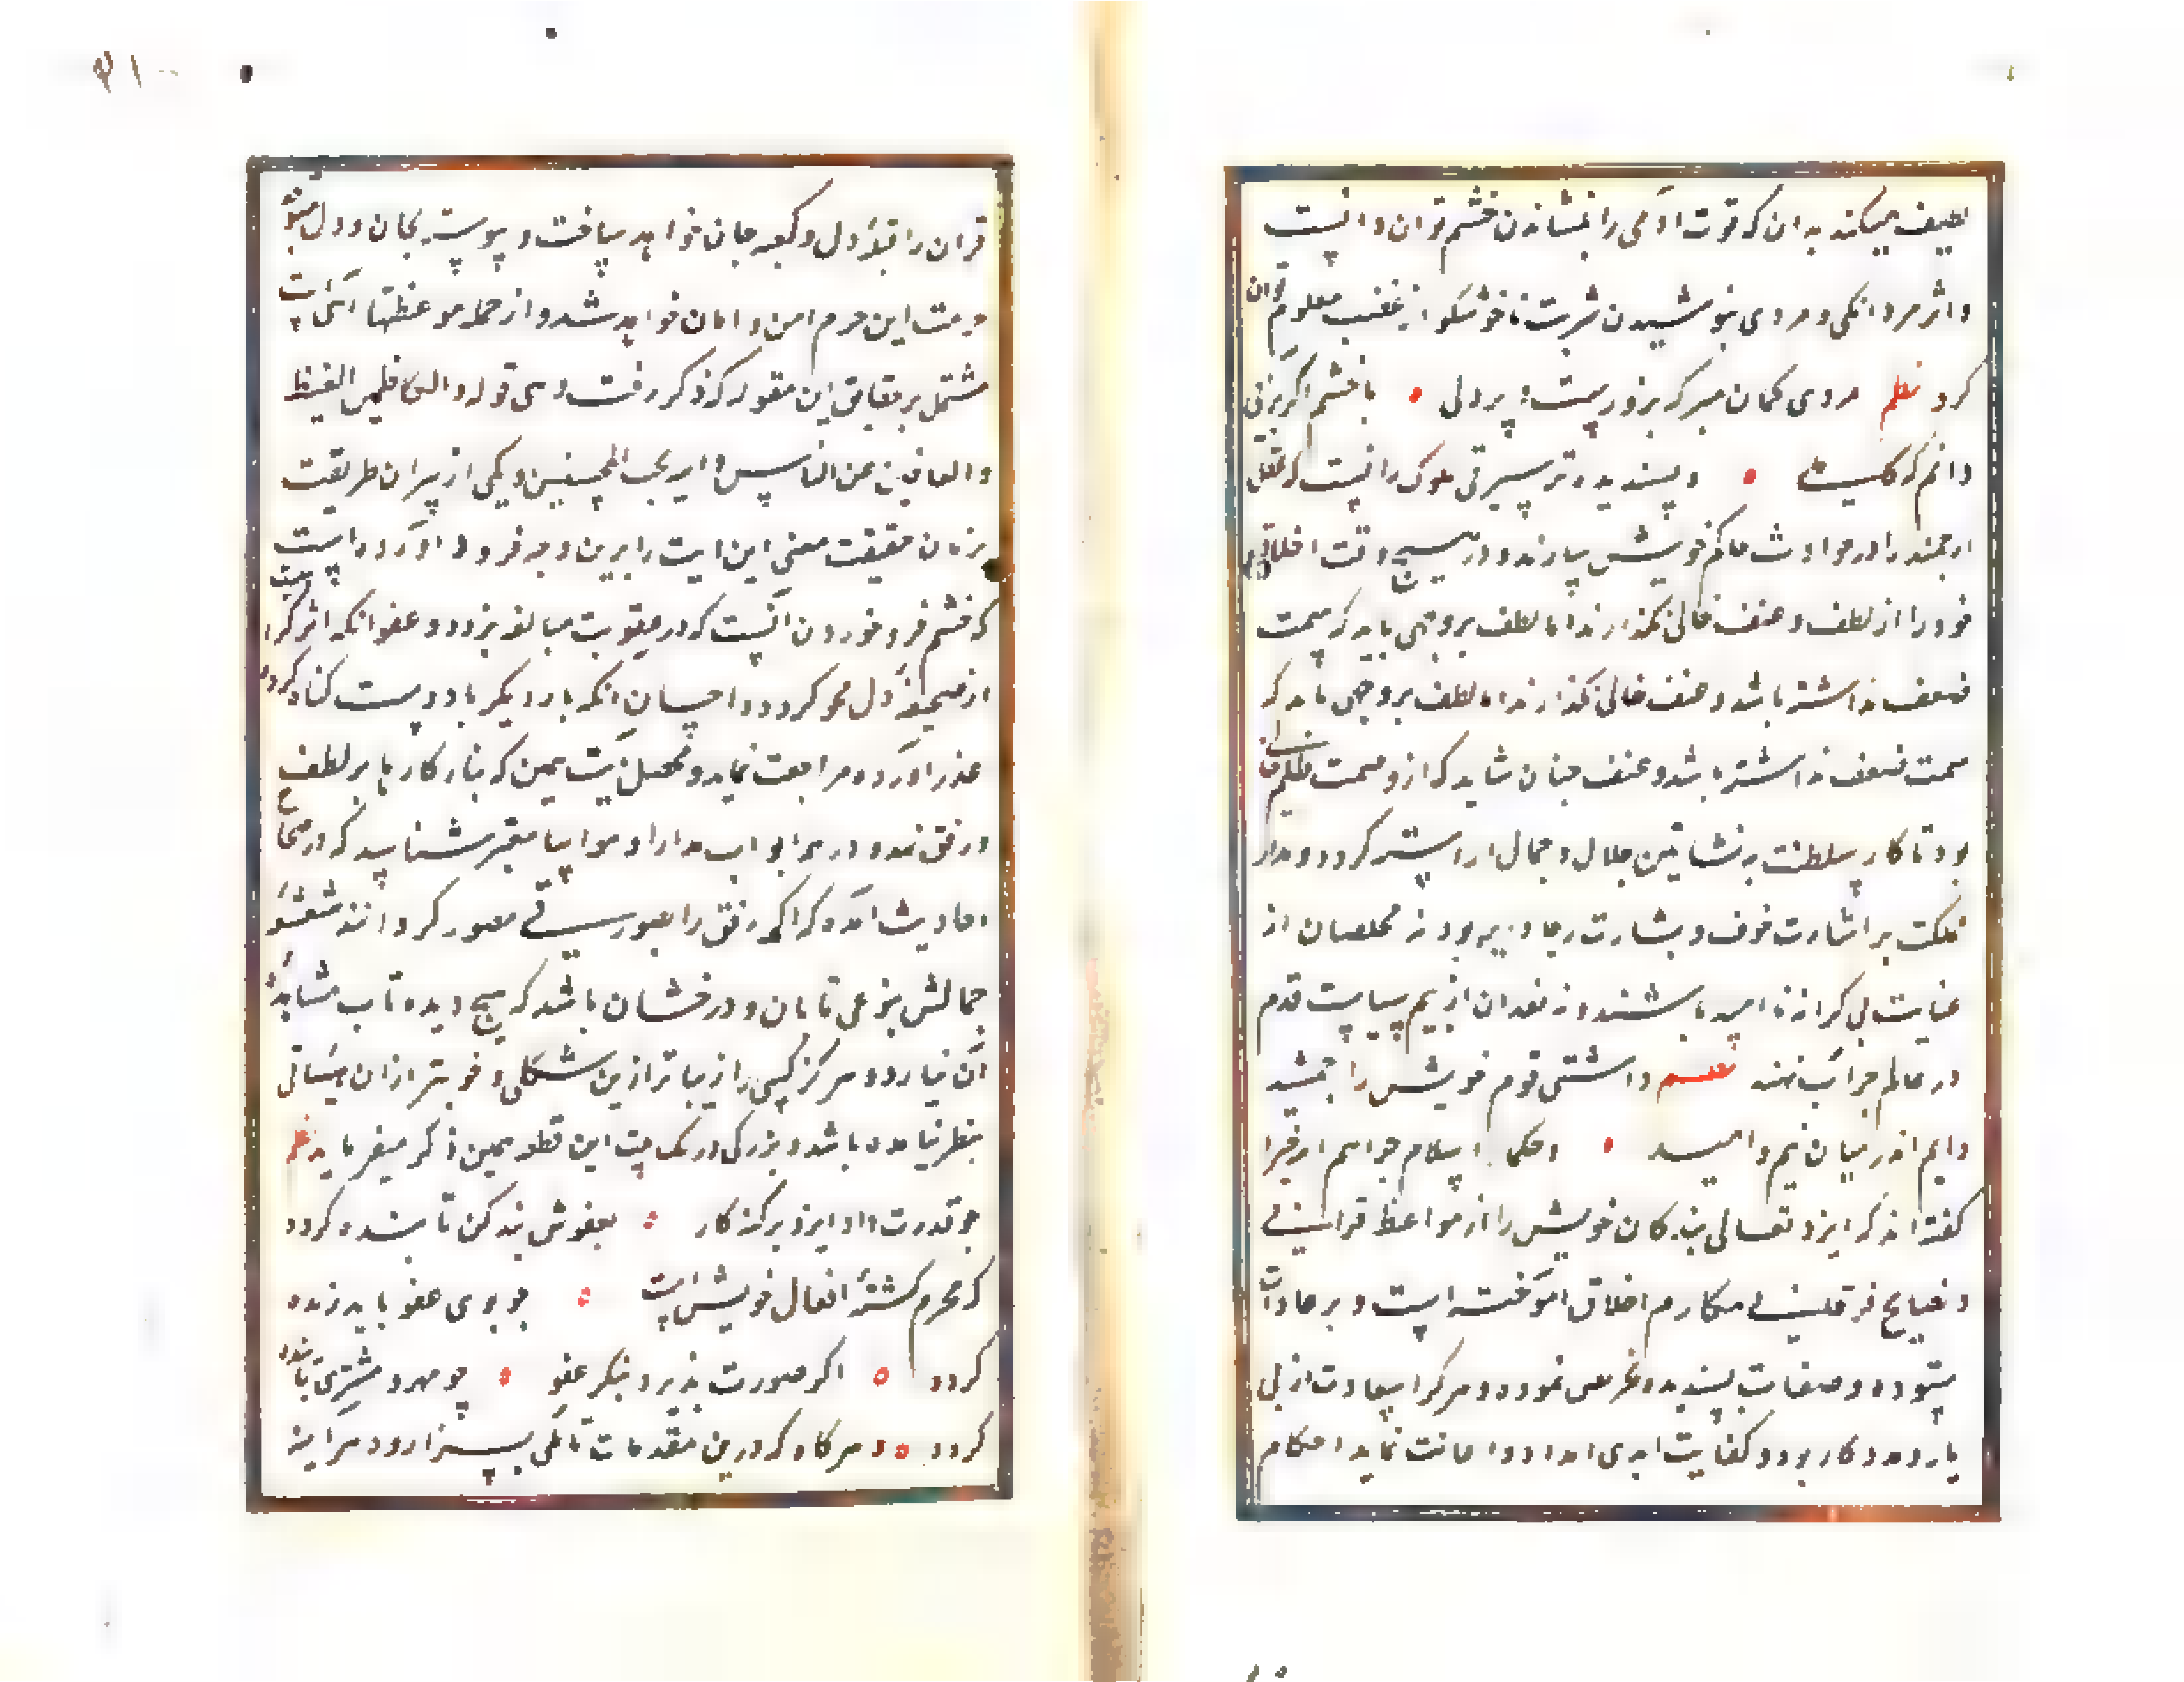 لطیف میکند بدان که قوت ادمی را بنشاندن خشم توان دانست
و اثر مردانکی و مردی بنوشیدن شربت ناخوشکوار غضب معلوم توان
کرد نظم مردی کمان مبر که بزورست و پردلی • با خشم اکر بزنی
دانم که کاملی • و پسندیده تر سیرتی ملوک را انست که عقل
ارجمند را در حوادث حاکم خویش سازند و در هیچ وقت اخلاق
خود را از لطف و عنف خالی نکذارند اما لطف بر وجهی باید که سمت
ضعف نداشته باشد و عنف خالی نکذارند اما لطف بر وجهی باید که
سمت ضعف نداشته باشد و عنف چنان شاید که از وصمت ظلم خالی
بود تا کار سلطنت به نشاتین جلال و جمال اراسته کردد و مدار
مملکت بر اشارت خوف و بشارت رجا دایر بود نه مخلصان از
عنایت بی کرانه نا امید باشند و نه مفسدان از بیم سیاست قدم
در عالم جرات نهند نظم داشتی قوم خویش را جمشید
دایم اندر میان بیم و امید • و حکماء اسلام جزاهم الله خیرا
کفته اند که ایزد تعالی بندکان خویش را از مواعظ قرانی
و نصایح فرقانی مکارم اخلاق اموخته است و بر عادات
ستوده و صفات پسندیده تحریص نموده و هر کرا سعادت ازلی
یار و مددکار بود و کفایت ابدی امداد و اعانت نماید احکام
قران را قبلهٔ دل و کعبه جان خواهد ساخت و پیوسته بجان و دل متوجه
حرمت این حرم امن و امان خواهد شد و از جمله موعظتها ایتی است
مشتمل بر حقایق این مقوله که ذکر رفت و هی قوله والکاظمین الغیظ
والعافین عن الناس والله یحب المحسنین و یکی از پیران طریقت
بزبان حقیقت معنی این ایت را برین وجه فرود اورده است
که خشم فرو خوردن انست که در عقوبت مبالغه نرود و عفو انکه اثر کراهت
از صحیفهٔ دل محو کردد و احسان انکه بار دیکر با دوست کناه کرده
عذر اورده مراجعت نماید و محصل ایت همین که بناء کارها بر لطف
و رفق نهد و در همه ابواب مدارا و مواسا معتبر شناسد که در صحاح
احادیث امده که اکر رفق را بصورتی مصور کردانند شعشعهٔ
جمالش بنوعی تابان و درخشان باشد که هیچ دیده تاب مشاهدهٔ
آن نیارد و هرکز کسی را زیباتر ازین شکلی و خوبتر ازان هیاتی
بنظر نیامده باشد و بزرکی در یک بیت این قطعه همین ذکر میفرماید نظم
چو قدرت داد ایزد بر کنه کار • بعفوش بند کن تا بنده کردد
که مجرم کشتهٔ افعال خویش است • چو بوی عفو یابد زنده
کردد • اکر صورت پذیرد پیکر عفو • چو مهر و مشتری تابنده
کردد • و هر کاه که درین مقدمات تاملی بسزا رود هراینه